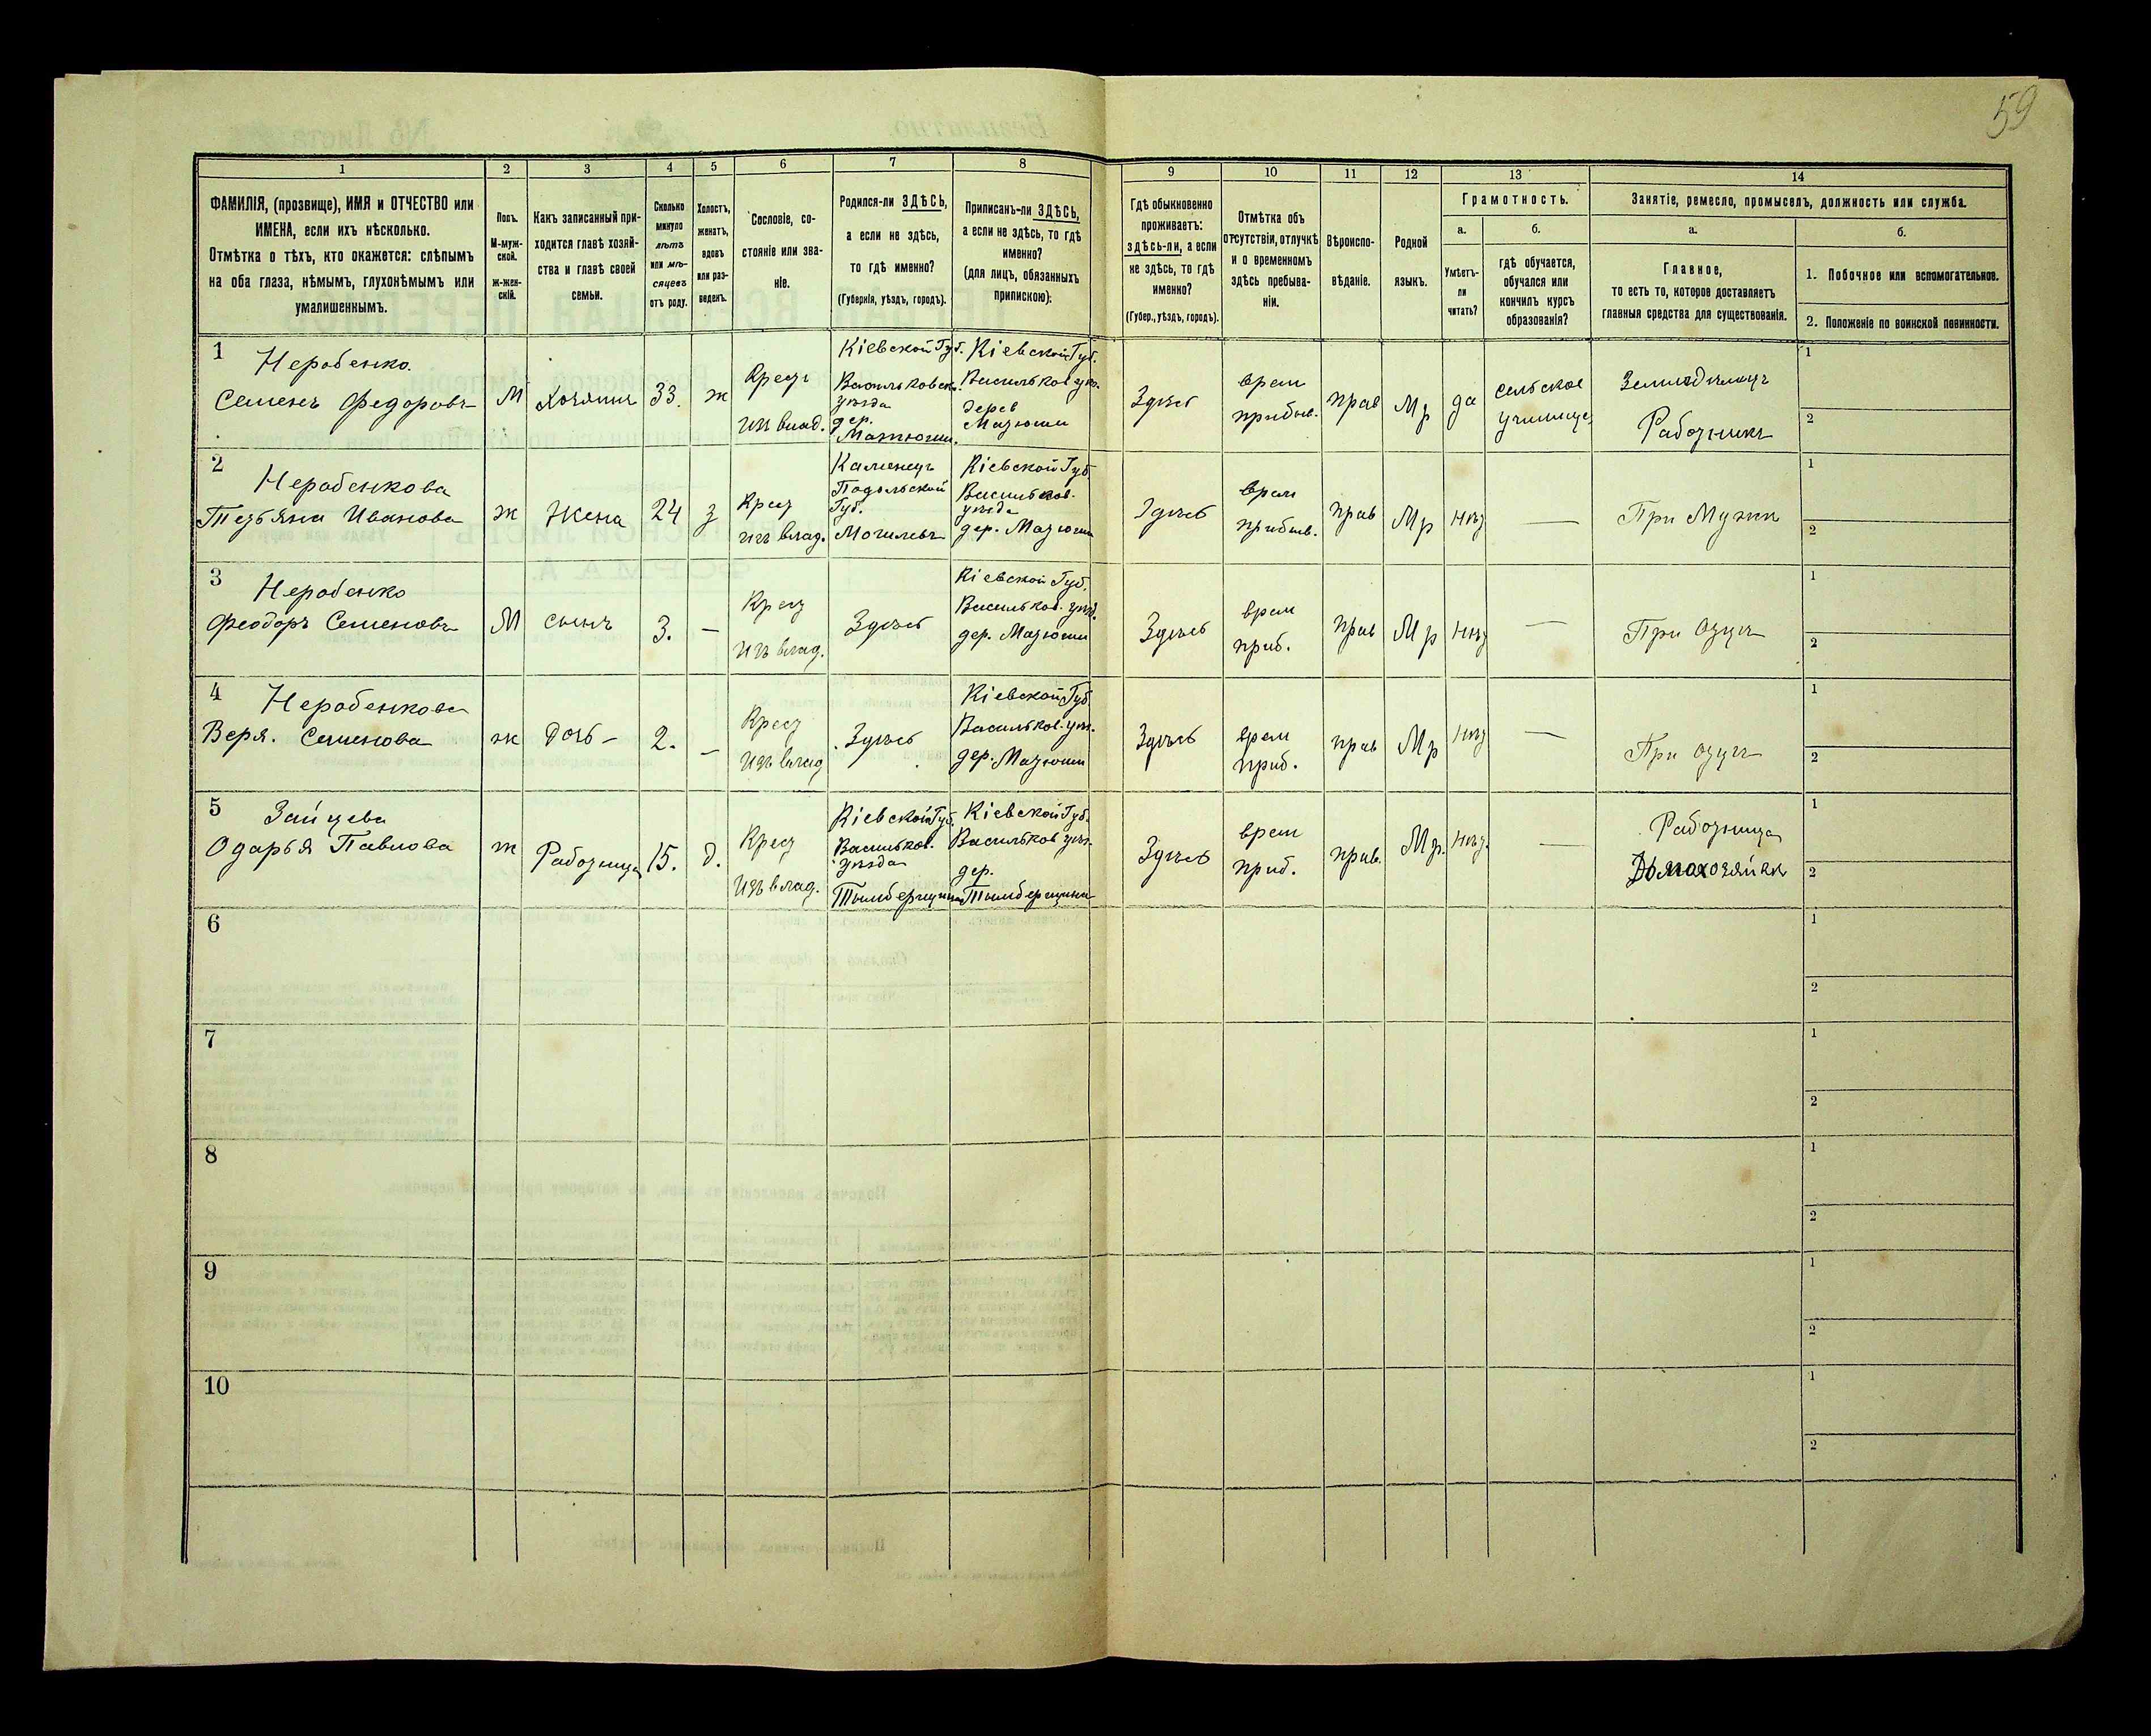 59
1
2
3
4
5
6
7
8
9
10
11
12
13
14
ФАМИЛІЯ, (прозвище), ИМЯ и ОТЧЕСТВО или
ИМЕНА, если ихъ нѣсколько.
Отмѣтка о тѣхъ, кто окажется: слѣпымъ
на оба глаза, нѣмымъ, глухонѣмымъ или
умалишеннымъ.
Полъ.
М-муж-
ской.
Ж-жен-
скій.
Какъ записанный при-
ходится главѣ хозяй-
ства и главѣ своей
семьи.
Сколько
минуло
лѣтъ
или мѣ-
сяцевъ
отъ роду.
Холостъ,
женатъ,
вдовъ
или раз-
веденъ.
Сословіе, со-
стояніе или зва-
ніе.
Родился-ли ЗДѢСЬ,
а если не здѣсь,
то гдѣ именно?
(Губернія, уѣздъ, городъ).
Приписанъ-ли ЗДѢСЬ,
а если не здѣсь, то гдѣ
именно?
(для лицъ, обязанныхъ
припискою).
Гдѣ обыкновенно
проживаетъ:
здѣсь-ли, а если
не здѣсь, то гдѣ
именно?
(Губер., уѣздъ, городъ).
Отмѣтка объ
отсутствіи, отлучкѣ
и о временномъ
здѣсь пребыва-
ніи.
Вѣроиспо-
вѣданіе.
Родной
языкъ.
Грамотность.
а.
Умѣетъ-
ли
читать?
б.
гдѣ обучается,
обучался или
кончилъ курсъ
образованія?
Занятіе, ремесло, промыселъ, должность или служба.
а.
Главное,
то есть то, которое доставляетъ
главныя средства для существованія.
б.
1. Побочное или вспомогательное.
2. Положеніе по воинской повинности.
1
Неробенко
Семенъ Федоровъ
М
Хозяинъ
33.
ж
Крест
изъ влад.
Кіевской Губ.
Васильковск.
уѣзда
дер.
Кіевской Губ.
Васильков уѣз.
дерев
Мазюши
Здѣсь
врем
прибыв.
прав
Мр
да
сельское
училище
Земледѣлецъ
Работникъ
1
2
2
Неробенкова
Татьяна Иванова
ж
Жена
24
з
Крест
изъ влад.
Каменецъ
Подольской
Губ.
Могилевъ
Кіевской Губ.
Васильков.
уѣзда
дер. Мазюши
Здѣсь
врем
прибыв.
прав
Мр
нѣт
—
При Мужѣ
1
2
3
Неробенко
Феодоръ Семеновъ
М
сынъ
3.
—
Крест
изъ влад.
Здѣсь
Кіевской Губ.
Васильков. уѣзд.
дер. Мазюши
Здѣсь
врем
приб.
прав
Мр
нѣт
—
При отцѣ
1
2
4
Неробенкова
Вера. Семенова
ж
дочь –
2.
–
Крест
изъ влад
Здѣсь
Кіевской Губ.
Васильков. уѣз.
дер. Мазюши
Здѣсь
врем
приб.
прав
Мр
нѣт
—
При отцѣ
1
2
5
Зайцева
Одарья Павлова
ж
Работница
15.
д.
Крест
изъ влад.
Кіевской Губ.
Васильков.
уѣзда
Кіевской Губ.
Васильков уѣз.
дер.
Здѣсь
врем
приб.
прав.
Мр.
нѣт.
—
Работница
Домохозяйки
1
2
6
1
2
7
1
2
8
1
2
9
1
2
10
1
2